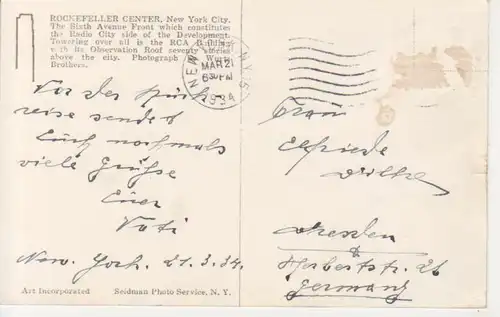 ROCKEFELLER CENTER, New York City.
The Sixth Avenue Front which constitutes
the Radio City side of the Development.
Towering over all is the RCA Building
with its Observation Roof seventy stories
above the city. Photograph Wurts
Brothers.
NEW
MAR 21
6 PM
1934
Vor der Rück-
reise sendet
Euch nochmals
viele Grüsse
Euer
Vati
New York. 21.3.34.
Frau
Elfriede
Dresden
Herbertstr. 26
Germany
Art Incorporated
Seidman Photo Service, N. Y.